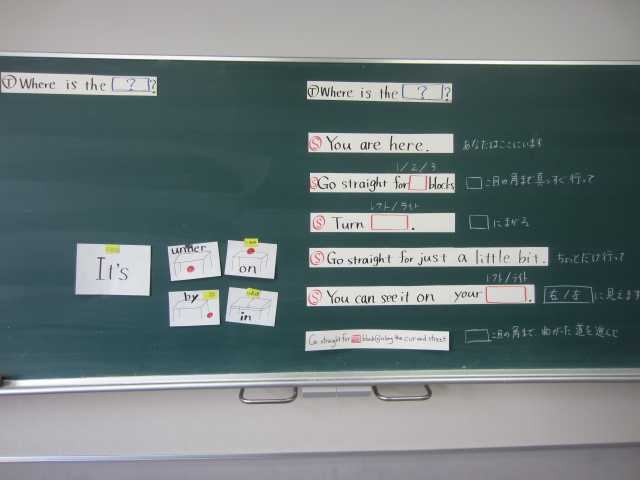 Ⓣ Where is the ? ?
It's
under
on
by
in
Ⓣ Where is the ? ?
Ⓢ You are here. あなたはここにいます
1/2/3
Ⓢ Go straight for blocks つ目の角まで真っすぐ行って
レフト/ライト
Ⓢ Turn . にまがる
Ⓢ Go straight for just a little bit. ちょっとだけ行って
レフト/ライト
Ⓢ You can see it on your . 右/左 に見えます
Go straight for block(s) along the curved street つ目の角まで、曲がった道を進んで